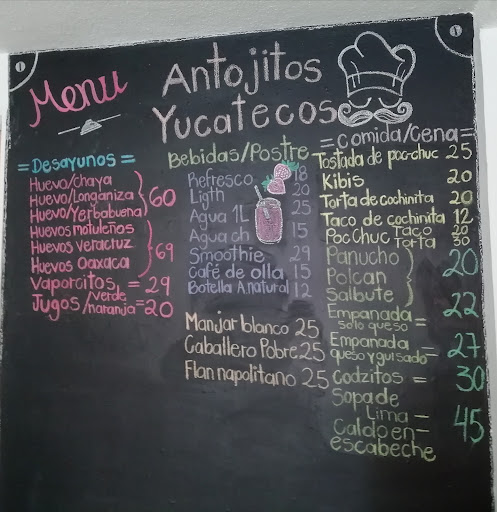 Menu
Antojitos
Yucatecos
=Desayunos=
Huevo/chaya
Huevo/Longaniza
Huevo/Yerbabuena
60
Huevos motuleños
Huevos veracruz
Huevos Oaxaca
69
Vaporcitos = 29
Jugos /verde
naranja = 20
Bebidas/Postre
Refresco 18
Ligth 20
Agua 1L 25
Agua ch 15
Smoothie 29
Café de olla 15
Botella A.natural 12
Manjar blanco 25
Caballero Pobre 25
Flan napolitano 25
=comida/cena=
Tostada de poc-chuc 25
Kibis 20
Torta de cochinita 20
Taco de cochinita 12
Poc Chuc Taco 20
Torta 30
Panucho
Polcan
Salbute
20
Empanada
solo queso = 22
Empanada
queso y guisado = 27
Codzitos = 30
Sopa de
Lima —
Caldo en —
escabeche
45